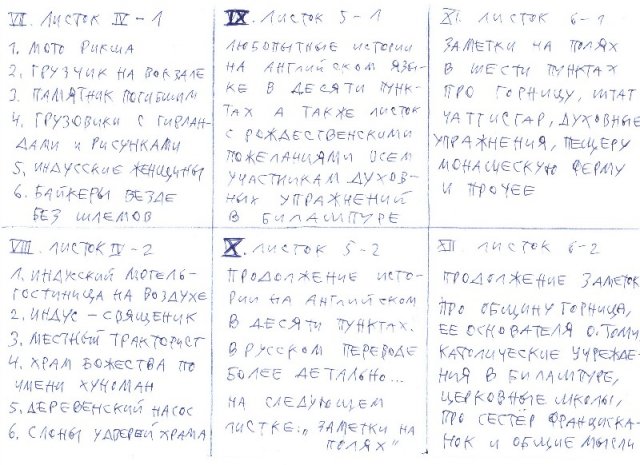 VII. ЛИСТОК IV-1
1. МОТО РИКША
2. ГРУЗЧИК НА ВОКЗАЛЕ
3. ПАМЯТНИК ПОГИБШИМ
4. ГРУЗОВИКИ С ГИРЛАН-
ДАМИ И РИСУНКАМИ
5. ИНДУССКИЕ ЖЕНЩИНЫ
6. БАЙКЕРЫ ВЕЗДЕ
БЕЗ ШЛЕМОВ
IX. ЛИСТОК 5-1
ЛЮБОПЫТНЫЕ ИСТОРИИ
НА АНГЛИЙСКОМ ЯЗЫ-
КЕ В ДЕСЯТИ ПУНК-
ТАХ А ТАКЖЕ ЛИСТОК
С РОЖДЕСТВЕНСКИМИ
ПОЖЕЛАНИЯМИ ВСЕМ
УЧАСТНИКАМ ДУХОВ-
НЫХ УПРАЖНЕНИЙ
В БИЛАШПУРЕ
XI. ЛИСТОК 6-1
ЗАМЕТКИ НА ПОЛЯХ
В ШЕСТИ ПУНКТАХ
ПРО ГОРНИЦУ, ШТАТ
ЧАТТИСГАР, ДУХОВНЫЕ
УПРАЖНЕНИЯ, ПЕЩЕРУ
МОНАШЕСКУЮ ФЕРМУ
И ПРОЧЕЕ
VIII. ЛИСТОК IV-2
1. ИНДУСКИЙ МОТЕЛЬ-
ГОСТИНИЦА НА ВОЗДУХЕ
2. ИНДУС - СВЯЩЕНИК
3. МЕСТНЫЙ ТРАКТОРИСТ
4. ХРАМ БОЖЕСТВА ПО
ИМЕНИ ХУНОМАН
5. ДЕРЕВЕНСКИЙ НАСОС
6. СЛОНЫ У ДВЕРЕЙ ХРАМА
X. ЛИСТОК 5-2
ПРОДОЛЖЕНИЕ ИСТО-
РИИ НА АНГЛИЙСКОМ
В ДЕСЯТИ ПУНКТАХ.
В РУССКОМ ПЕРЕВОДЕ
БОЛЕЕ ДЕТАЛЬНО...
НА СЛЕДУЮЩЕМ
ЛИСТКЕ: „ЗАМЕТКИ НА
ПОЛЯХ"
XII. ЛИСТОК 6-2
ПРОДОЛЖЕНИЕ ЗАМЕТОК
ПРО ОБЩИНУ ГОРНИЦА,
ЕЕ ОСНОВАТЕЛЯ О. ТОМИ
КАТОЛИЧЕСКИЕ УЧРЕЖДЕ-
НИЯ В БИЛАШПУРЕ,
ЦЕРКОВНЫЕ ШКОЛЫ,
ПРО СЕСТЁР ФРАНЦИСКА-
НОК И ОБЩИЕ МЫСЛИ